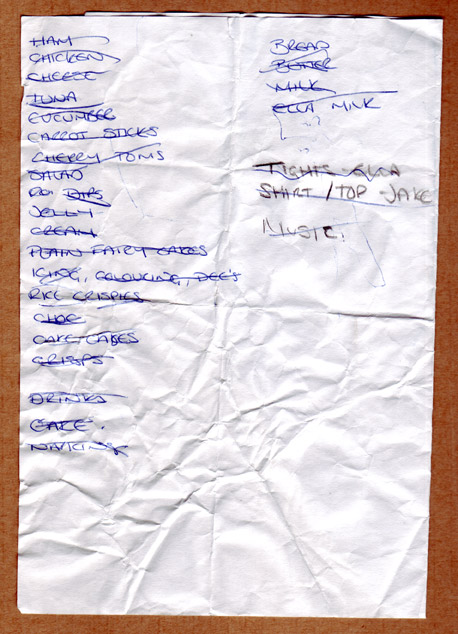 HAM
CHICKEN
CHEESE
TUNA
CUCUMBER
CARROT STICKS
CHERRY TOMS
SALAD
DIPS
JELLY
CREAM
PLAIN FAIRY CAKES
ICING, COLOURING, DEC'S
RICE CRISPIES
CHOC
CAKE CASES
CRISPS
DRINKS
CAKE.
NAPKINS
BREAD
BUTTER
MILK
ELLA MILK
TIGHTS ELLA
SHIRT / TOP - JAKE
MUSIC!